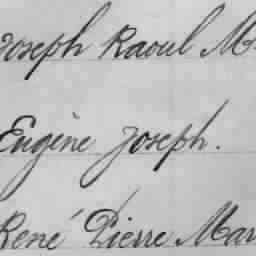 Joseph Raoul M
Eugène Joseph.
René Pierre Mar